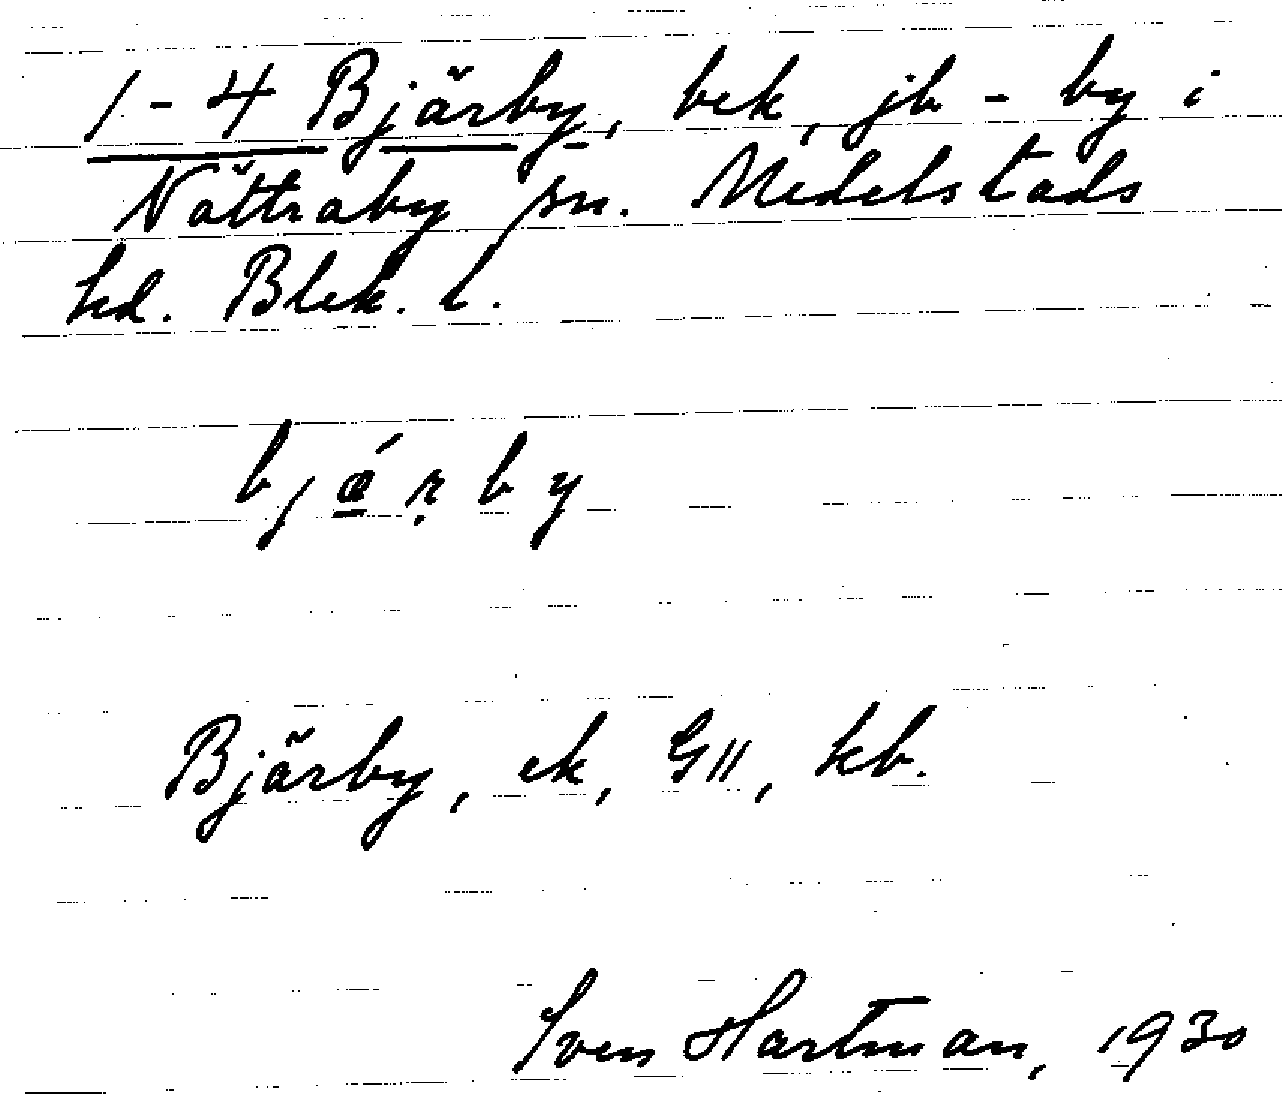 1-4 Bjärby, bek, jb - by i
Nättraby sn. Medelstads
hd. Blek. l.
bjǽ̱ṛby
Bjärby, ek, GII, kb.
Sven Hartman, 1930